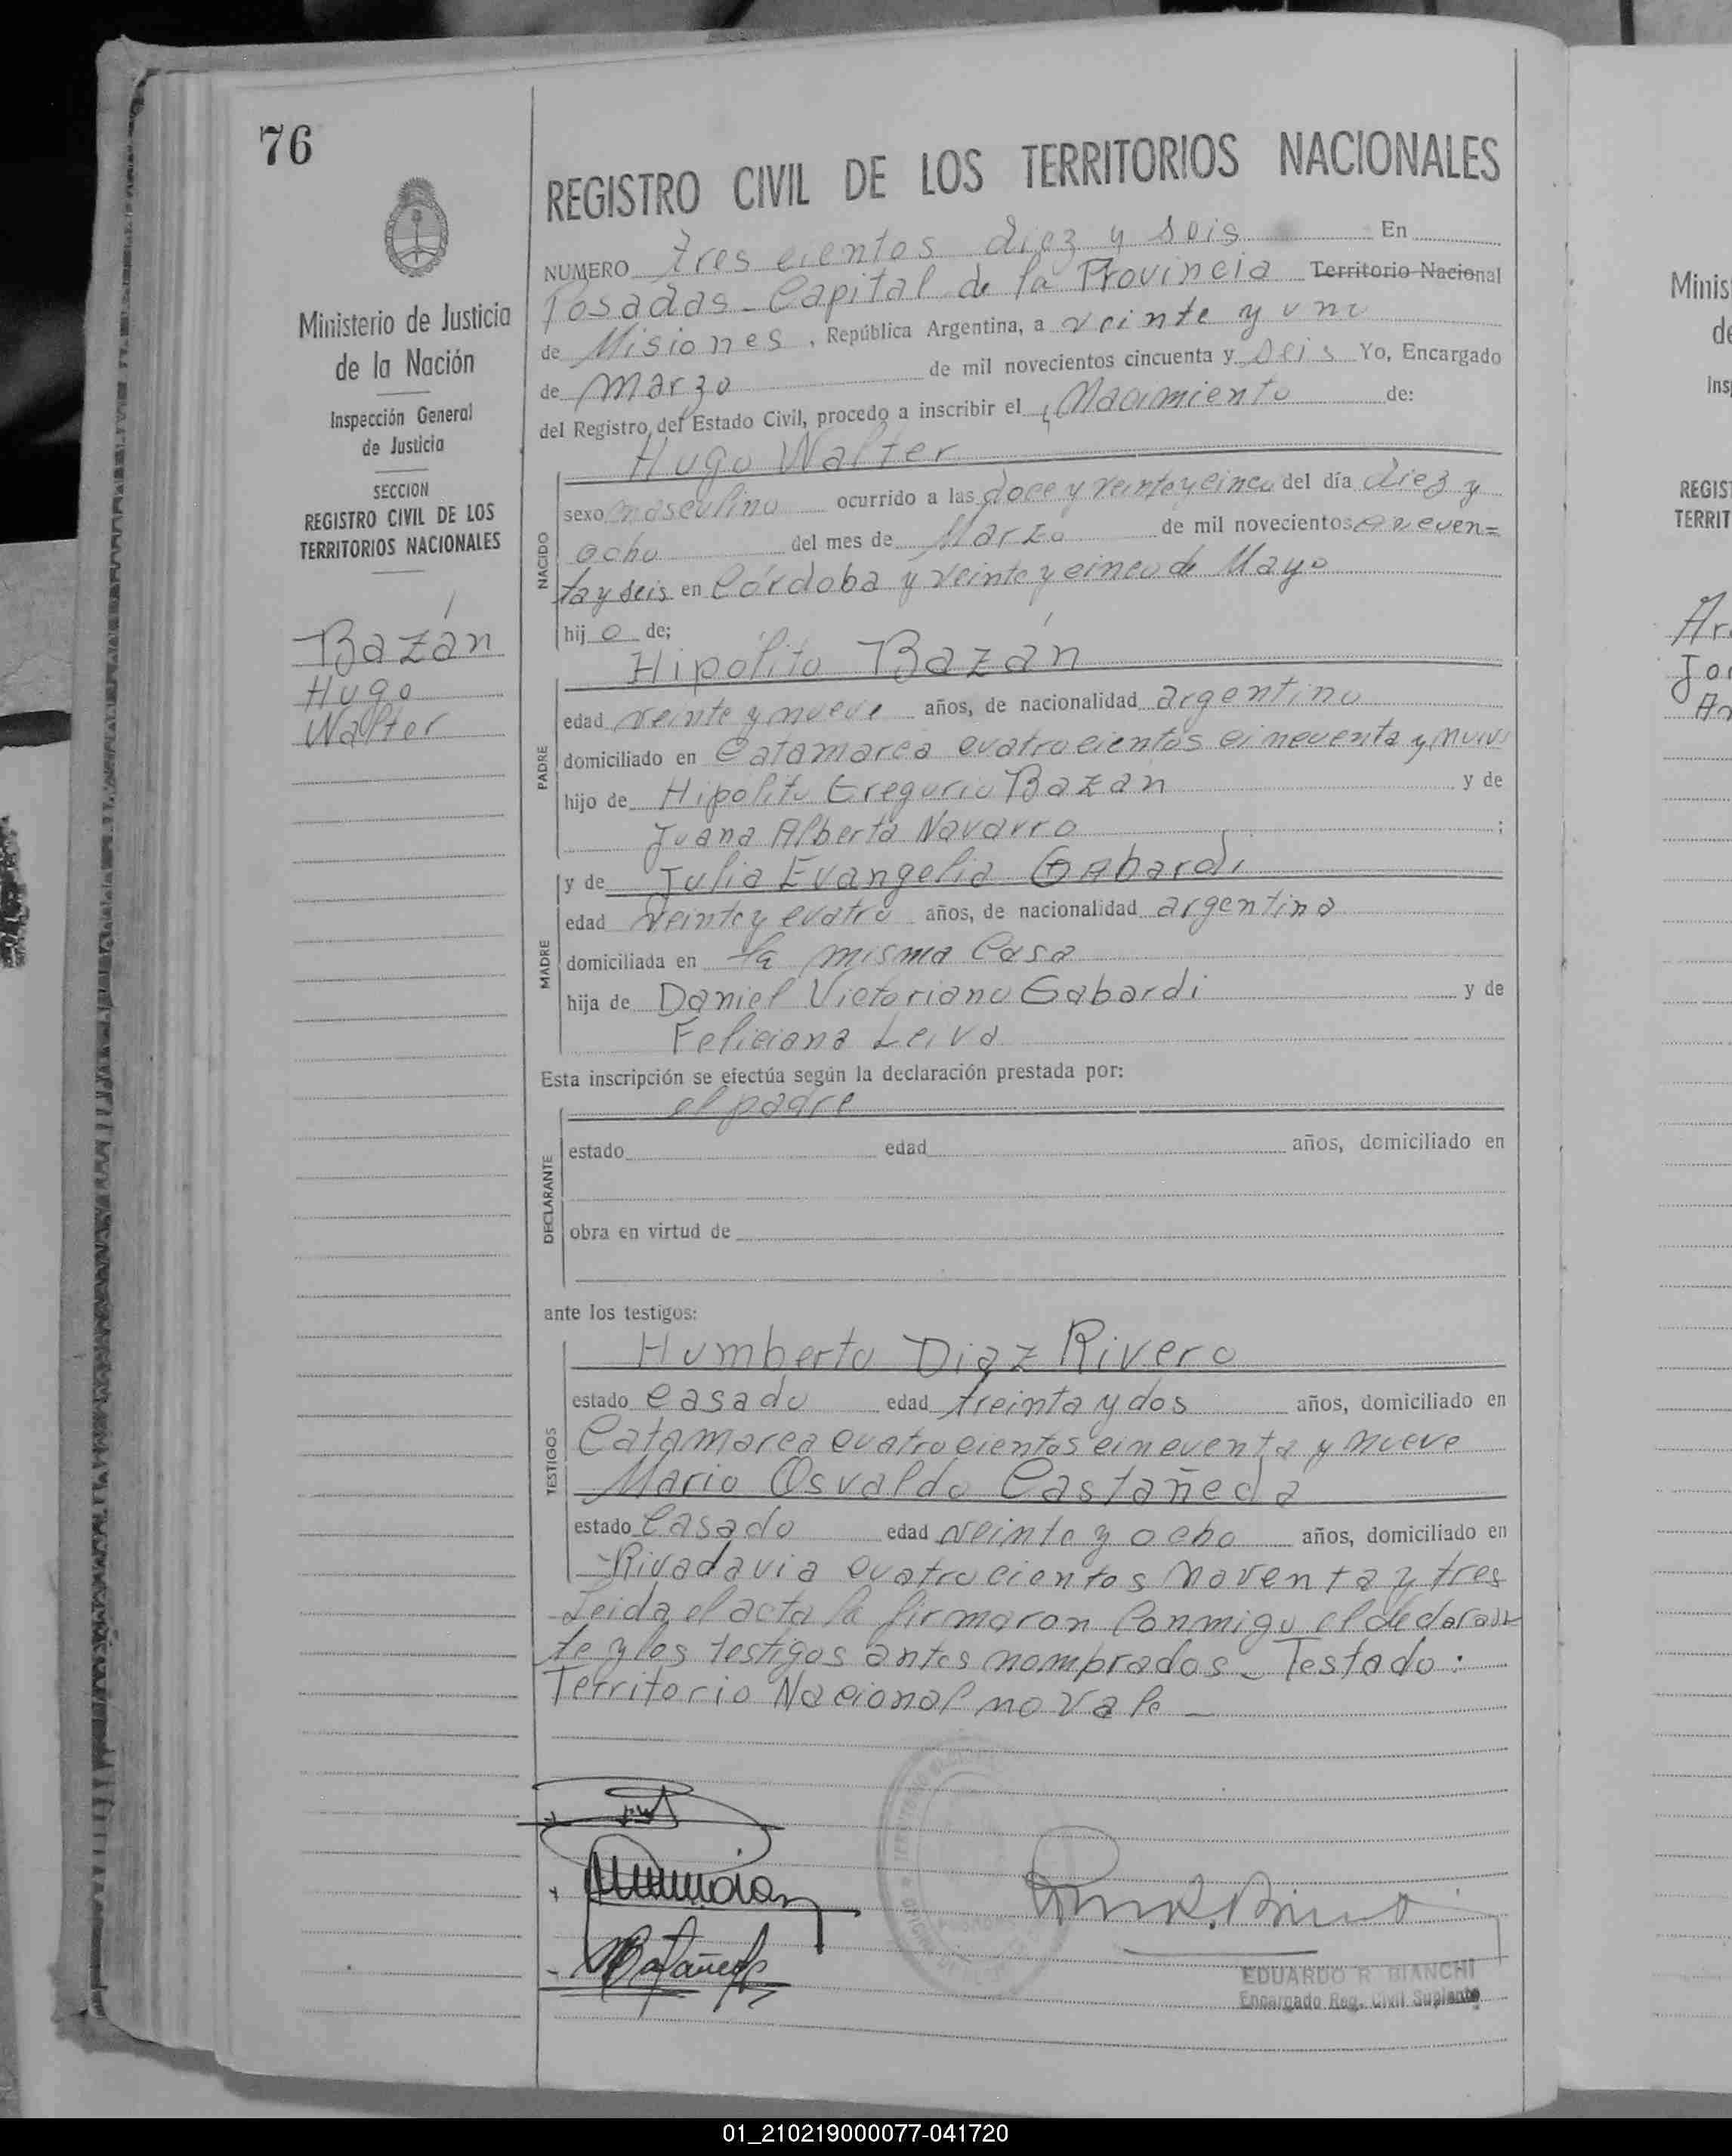 76
REGISTRO CIVIL DE LOS TERRITORIOS NACIONALES
NUMERO tres cientos diez y seis En
Posadas - Capital de la Provincia Territorio Nacional
de Misiones, República Argentina, a veinte y uno
de marzo de mil novecientos cincuenta y seis Yo, Encargado
del Registro del Estado Civil, procedo a inscribir el Nacimiento de:
Hugo Walter
sexo masculino ocurrido a las doce y veinte y cinco del día diez y
ocho del mes de Marzo de mil novecientos cincuen=
ta y seis en Córdoba y veinte y cinco de Mayo
hijo de;
Hipólito Bazán
edad veinte y nueve años, de nacionalidad argentino
domiciliado en Catamarca cuatrocientos cincuenta y nueve
hijo de Hipólito Gregorio Bazán y de
Juana Alberta Navarro ;
y de Julia Evangelia Gabardi
edad veinte y cuatro años, de nacionalidad argentina
domiciliada en la misma Casa
hija de Daniel Victoriano Gabardi y de
Feliciana Leiva
Esta inscripción se efectúa según la declaración prestada por:
el padre
estado edad años, domiciliado en
obra en virtud de
ante los testigos:
Humberto Diaz Rivero
estado Casado edad treinta y dos años, domiciliado en
Catamarca cuatrocientos cincuenta y nueve
Mario Osvaldo Castañeda
estado Casado edad veinte y ocho años, domiciliado en
Rivadavia cuatrocientos noventa y tres
Leida el acta la firmaron Conmigo el declaran
te y los testigos antes nombrados - Testado:
Territorio Nacional no vale -
NACIDO
PADRE
MADRE
DECLARANTE
TESTIGOS
Ministerio de Justicia
de la Nación
Inspección General
de Justicia
SECCION
REGISTRO CIVIL DE LOS
TERRITORIOS NACIONALES
Bazán
Hugo
Walter
EDUARDO R. BIANCHI
Encargado Reg. Civil Suplente
Minis
de
Ins
REGIS
TERRIT
01_210219000077-041720